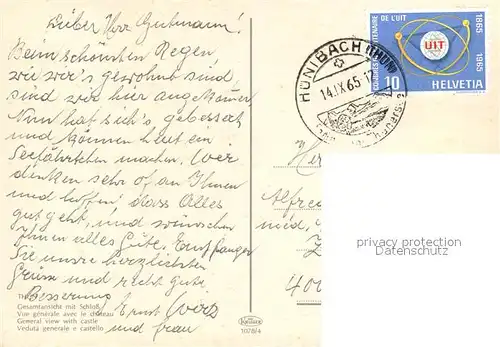 Lieber Herr Gutmann!
Beim schönsten Regen
wie wir's gewohnt sind,
sind wir hier angekommen
Nun hat sich's gebessert
und können heut ein
Seefährtchen machen. Wir
denken sehr oft an Ihnen
und hoffen, dass Alles
gut geht, und wünschen
Ihnen alles Gute. Empfangen
Sie unsre herzlichsten
Grüsse und recht gute
Besserung
Ernst
und Frau
Gesamtansicht mit Schloß
Vue générale avec le château
General view with castle
Veduta generale e castello
1078/4
HÜNIBACH (THUN)
14.IX.65
CENTENAIRE DE L'UIT
1865
1965
UIT
10
HELVETIA
Alfred
med.
400
privacy protection
Datenschutz